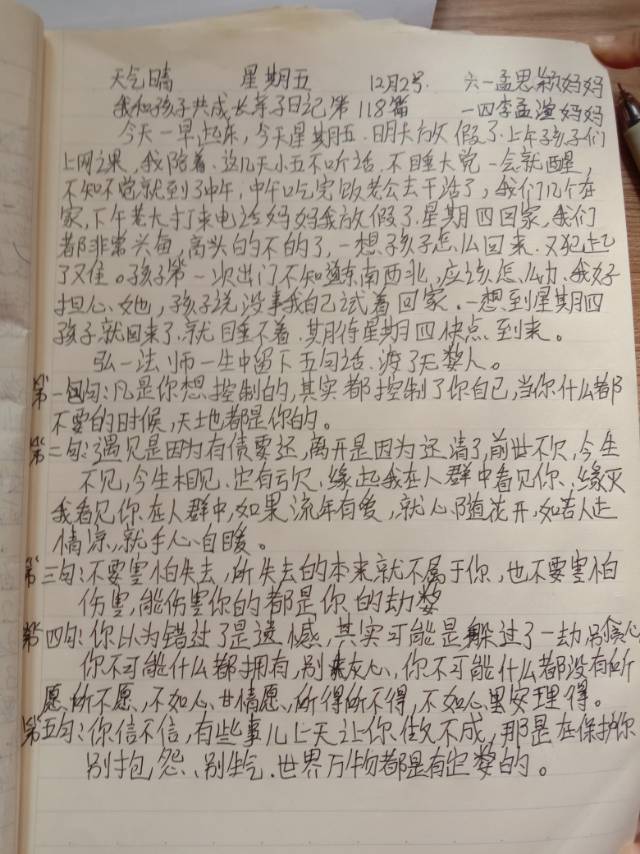 天气晴 星期五 12月2号 六一孟思颖妈妈
我和孩子共成长亲子日记第118篇 一四李孟渲妈妈
今天一早起来,今天星期五.明天放假了.上午孩子们
上网课,我陪着.这几天小五不听话.不睡大觉一会就醒,
不知不觉就到了中午,中午吃完饭老公去干活了,我们几个在
家,下午老大打来电话妈妈我放假了.星期四回家,我们
都非常兴奋,高头的不的了,一想孩子怎么回来.又犯起
了又隹。孩子第一次出门不知道东南西北,应该怎么办.我好
担心她,孩子说没事我自己试着回家.一想到星期四
孩子就回来了.就睡不着.期待星期四快点到来。
弘一法师一生中留下五句话.渡了无数人。
第一句:凡是你想控制的,其实都控制了你自己,当你什么都
不要的时候,天地都是你的。
第二句:遇见是因为有债要还,离开是因为还清了,前世不欠,今生
不见,今生相见,定有亏欠.缘起我在人群中看见你.缘灭
我看见你在人群中,如果流年有爱,就心随花开,如若人走
情凉,就手心自暖。
第三句:不要害怕失去,所失去的本来就不属于你,也不要害怕
伤害,能伤害你的都是你的劫数
第四句:你以为错过了是遗憾,其实可能是躲过了一劫别贪心
你不可能什么都拥有,别灰心,你不可能什么都没有所
愿所不愿,不如心甘情愿,所得所不得,不如心里安理得。
第五句:你信不信,有些事儿上天让你做不成,那是在保护你
别抱怨、别生气.世界万物都是有定数的。